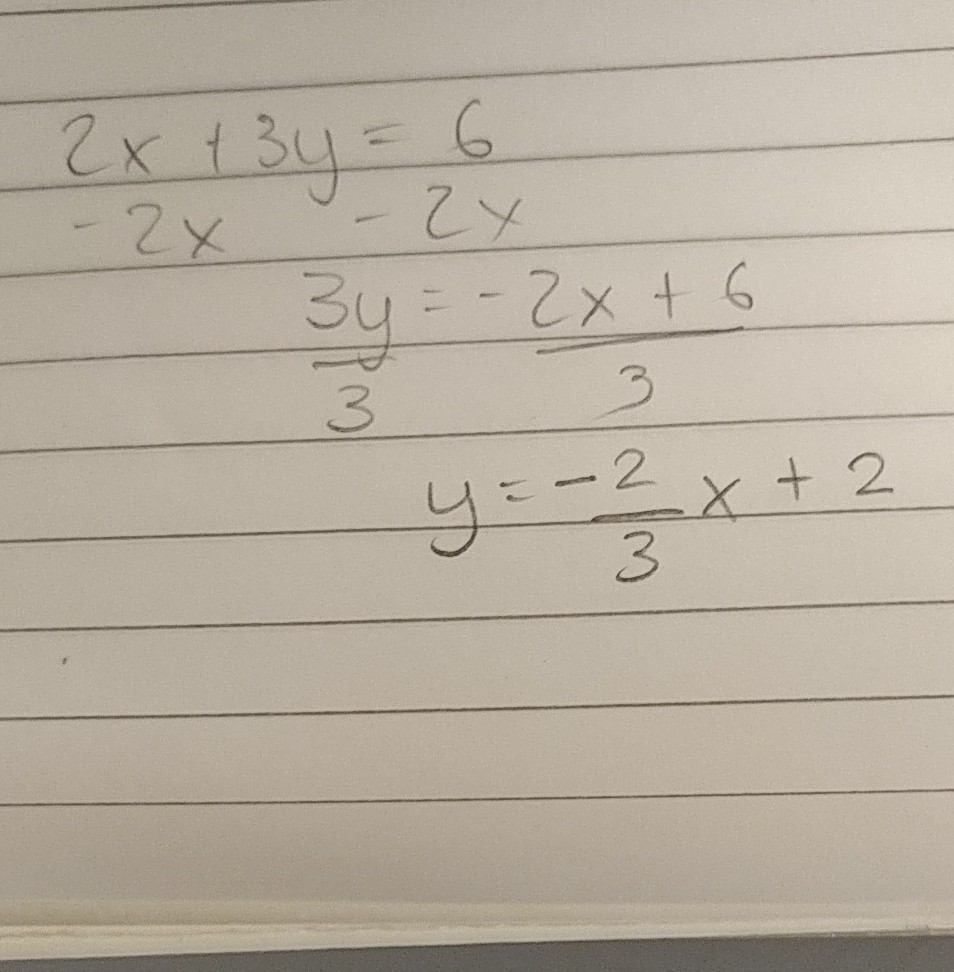 2x + 3y = 6
- 2x - 2x
3y = - 2x + 6
3 3
y = - 2/3 x + 2